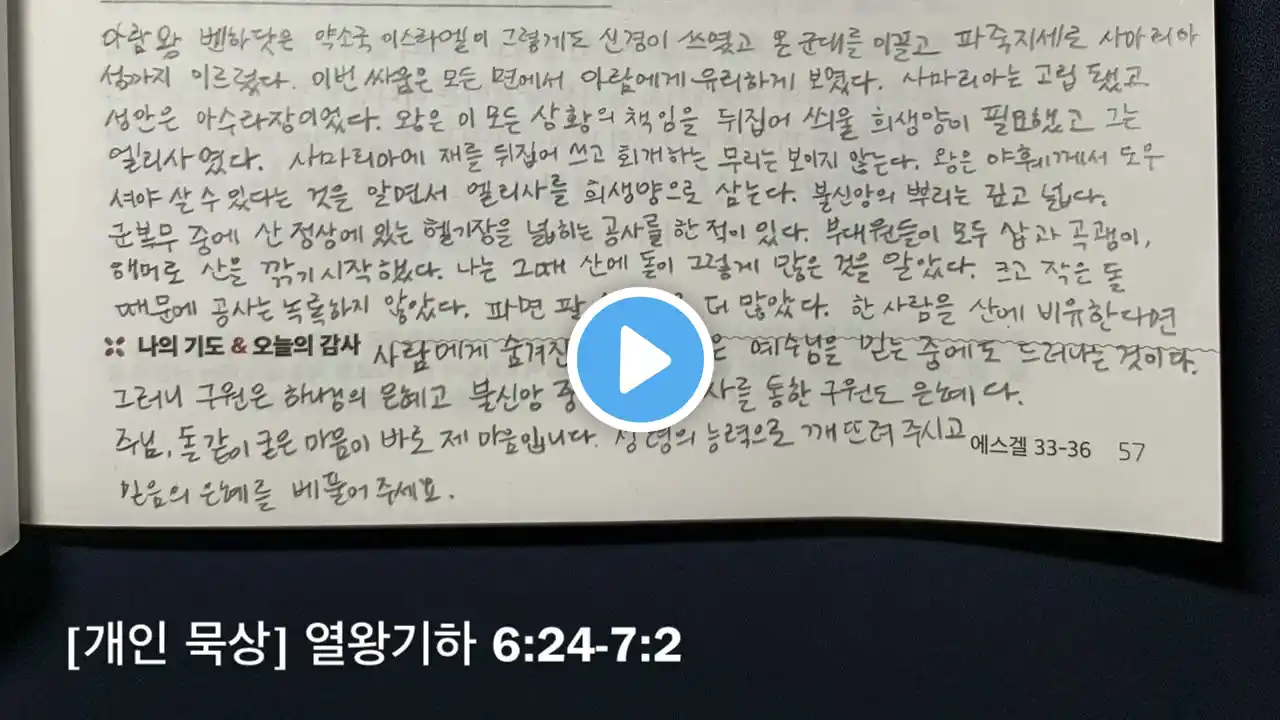 아람왕 벤하닷은 약소국 이스라엘이 그렇게도 신경이 쓰였고 온 군대를 이끌고 파죽지세로 사마리아
성까지 이르렀다. 이번 싸움은 모든 면에서 아람에게 유리하게 보였다. 사마리아는 고립 됐고
성안은 아수라장이었다. 왕은 이 모든 상황의 책임을 뒤집어 씌울 희생양이 필요했고 그는
엘리사였다. 사마리아에 재를 뒤집어 쓰고 회개하는 무리는 보이지 않는다. 왕은 야훼께서 도우
셔야 살 수 있다는 것을 알면서 엘리사를 희생양으로 삼는다. 불신앙의 뿌리는 깊고 넓다.
군복무 중에 산 정상에 있는 헬기장을 넓히는 공사를 한 적이 있다. 부대원들이 모두 삽과 곡괭이,
해머로 산을 깎기 시작했다. 나는 그때 산에 돌이 그렇게 많은 것을 알았다. 크고 작은 돌
때문에 공사는 녹록하지 않았다. 파면 팔 더 많았다. 한 사람을 산에 비유한다면
나의 기도 & 오늘의 감사 사람에게 숨겨진 은 예수님을 믿는 중에도 드러나는 것이다.
그러니 구원은 하나님의 은혜고 불신앙 중 사를 통한 구원도 은혜다.
주님, 돌 같이 굳은 마음이 바로 제 마음입니다. 성령의 능력으로 깨뜨려 주시고
에스겔 33-36 57
믿음의 은혜를 베풀어 주세요.
[개인 묵상] 열왕기하 6:24-7:2